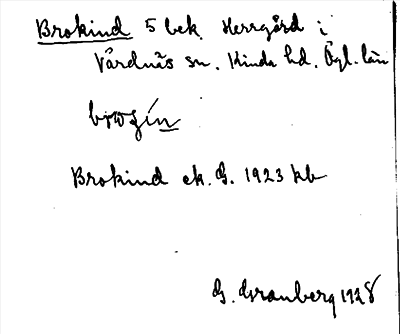 Brokind 5 bek. Herrgård i
Vårdnäs sn. Kinda hd. Ögl. län
Brokind ek. G. 1923 kb
G. Granberg 1928